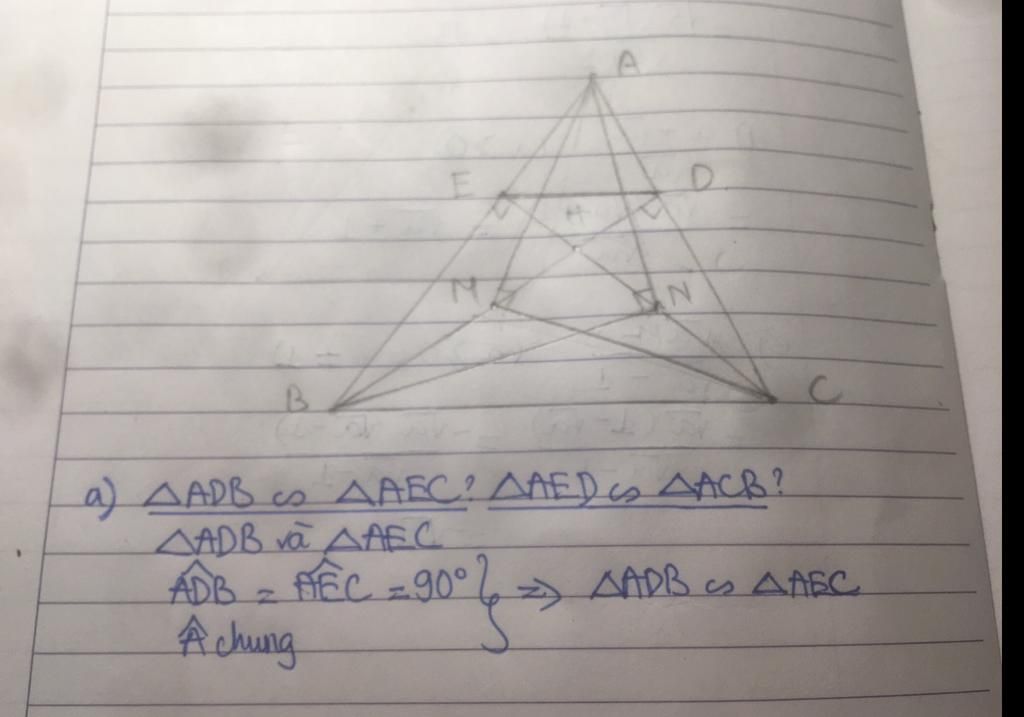 A
E D
H
M N
B C
a) △ADB ∽ △AEC? △AED ∽ △ACB?
△ADB và △AEC
ADB̂ = AÊC = 90° } ⇒ △ADB ∽ △AEC
Â chung